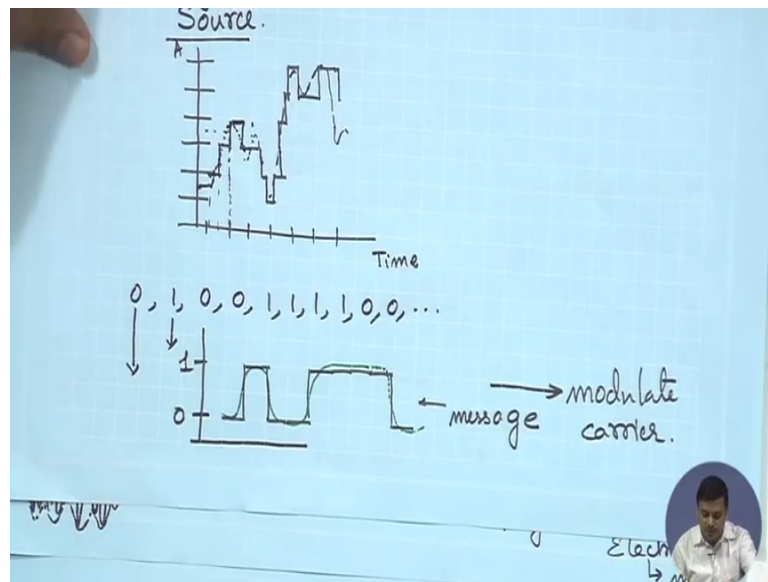 Source.
A
Time
0, 1, 0, 0, 1, 1, 1, 1, 0, 0, ...
1
0
message
modulate
carrier.
Elect